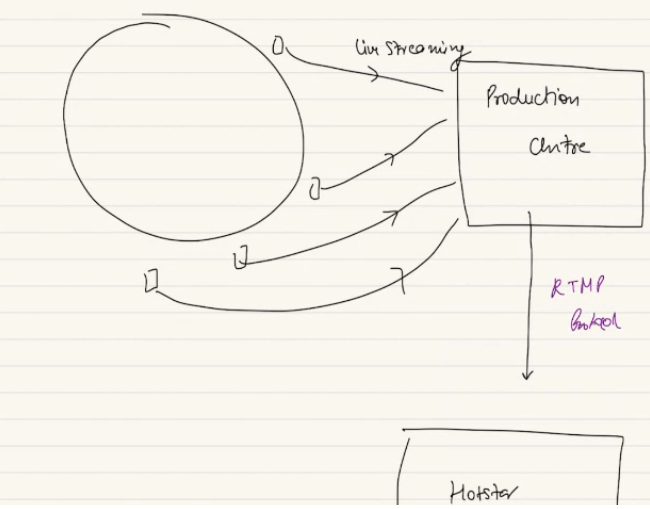 Live Streaming
Production
Centre
RTMP
Protocol
Hotstar